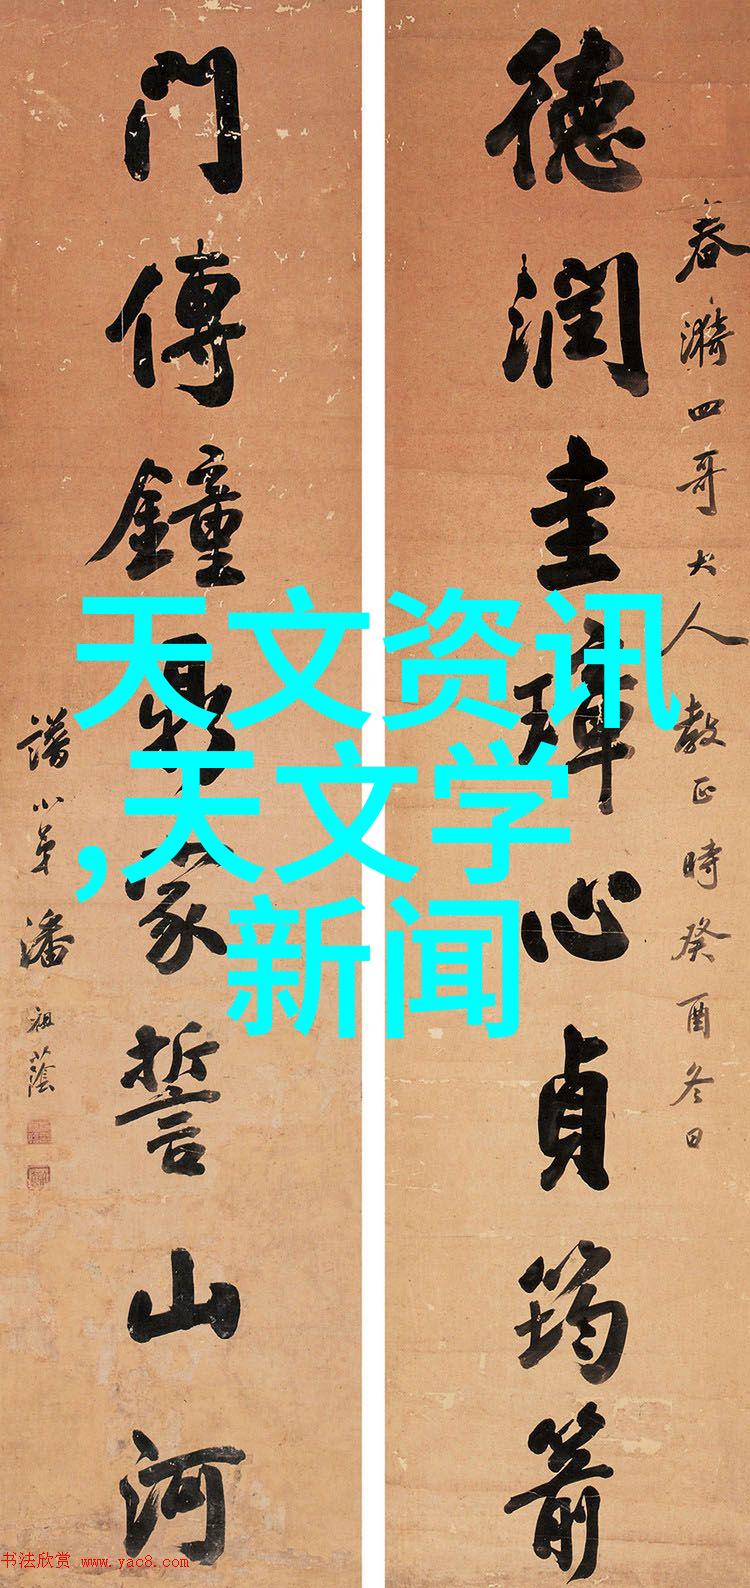 春漪四哥大人教正時癸酉冬日
德潤圭璋心貞筠箭
門傳鐘鼎家誓山河
譜小弟潘祖蔭
天文资讯
,天文学
新闻
书法欣赏 www.yac8.com